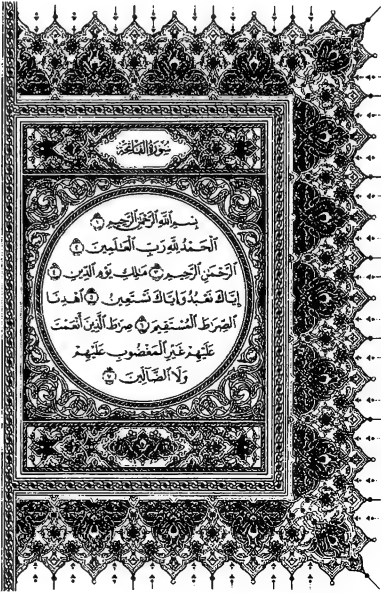 سُورَةُ الفَاتِحَةِ
بِسْمِ اللَّهِ الرَّحْمَنِ الرَّحِيمِ ١
الْحَمْدُ لِلَّهِ رَبِّ الْعَالَمِينَ ٢
الرَّحْمَنِ الرَّحِيمِ ٣ مَالِكِ يَوْمِ الدِّينِ ٤
إِيَّاكَ نَعْبُدُ وَإِيَّاكَ نَسْتَعِينُ ٥ اهْدِنَا
الصِّرَاطَ الْمُسْتَقِيمَ ٦ صِرَاطَ الَّذِينَ أَنْعَمْتَ
عَلَيْهِمْ غَيْرِ الْمَغْضُوبِ عَلَيْهِمْ
وَلَا الضَّالِّينَ ٧